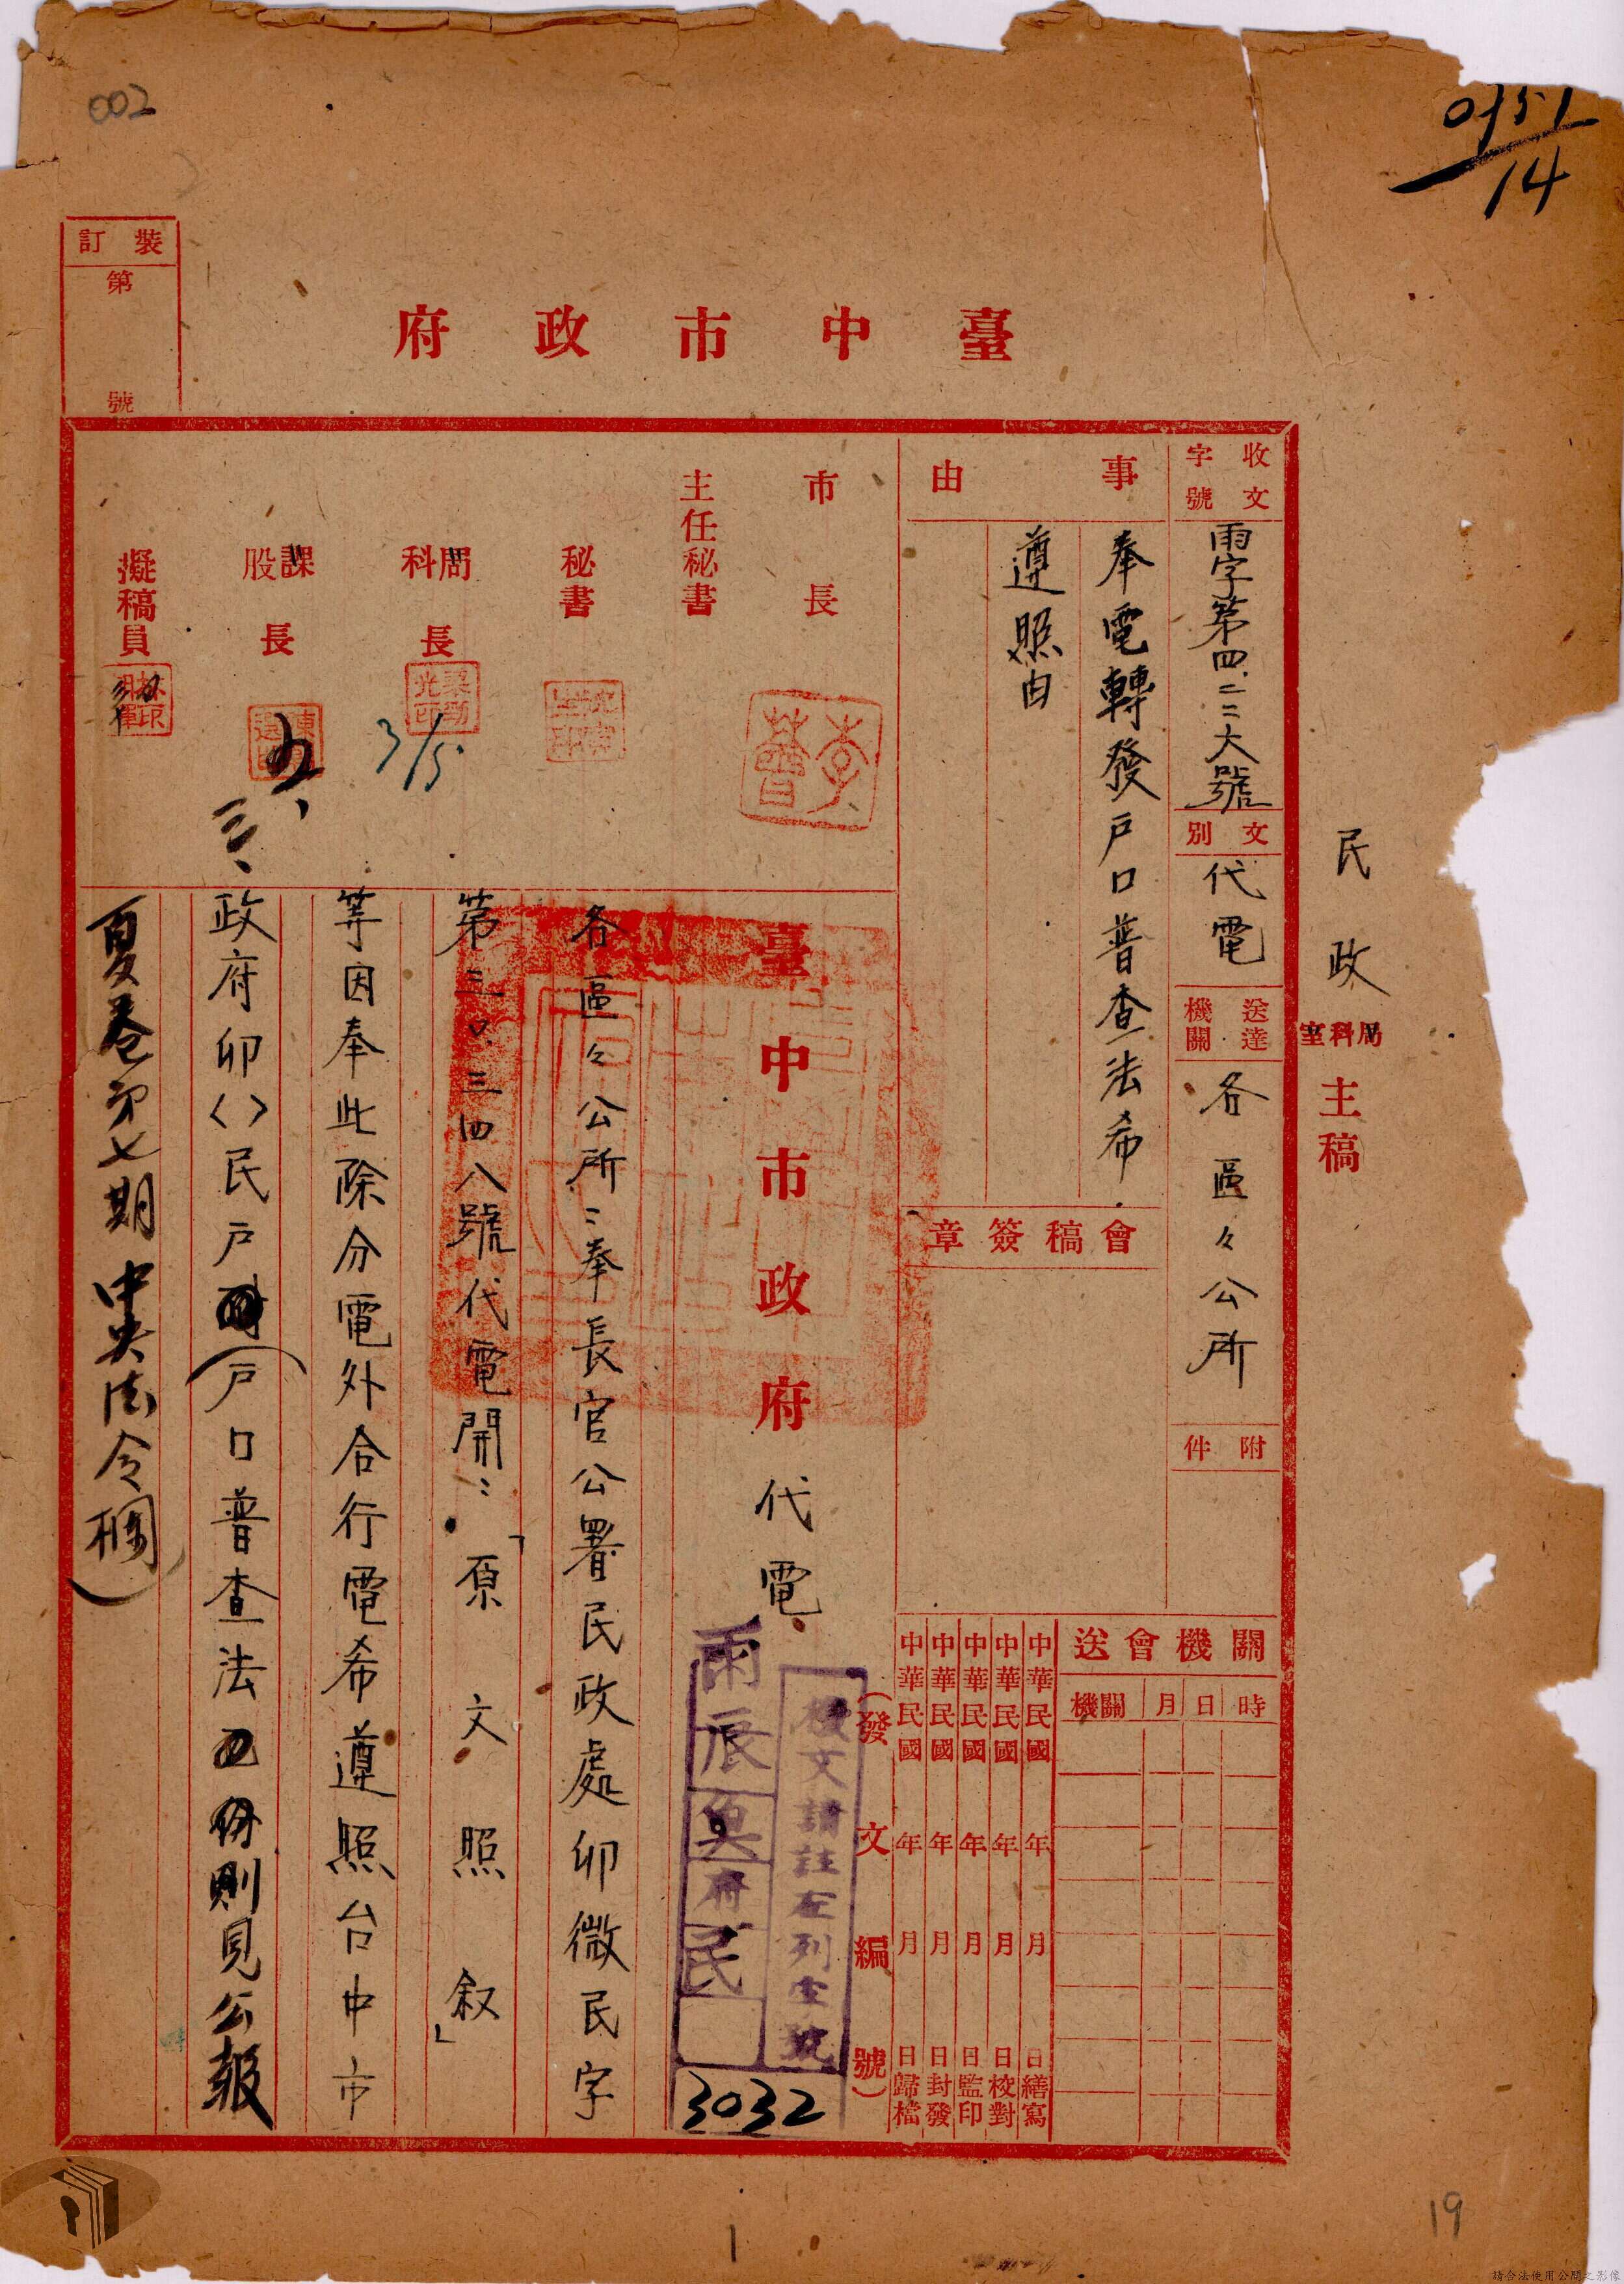 002
0151
14
裝訂
第
號
臺中市政府
民政
局科室
主稿
收文
字號
雨字第四、二三大號
文別
代電
送達
機關
各區々公所
附件
事由
奉電轉發戶口普查法希
遵照由
會稿簽章
市長
主任秘書
秘書
局科長
課股長
擬稿員
3/5
關機會送
機關
月
日
時
中華民國 年 月 日繕寫
中華民國 年 月 日校對
中華民國 年 月 日監印
中華民國 年 月 日封發
中華民國 年 月 日歸檔
(發文編號)
發文請註左列字號
雨辰
府民
3032
臺中市政府代電
各區々公所:奉長官公署民政處卯微民字
第三〇、三四八號代電開:「原文照敘」
等因奉此除分電外合行電希遵照台中市
政府卯〈〉民戶(戶口普查法份則見公報
夏卷第七期中央法令欄)
1
19
請合法使用公開之影像